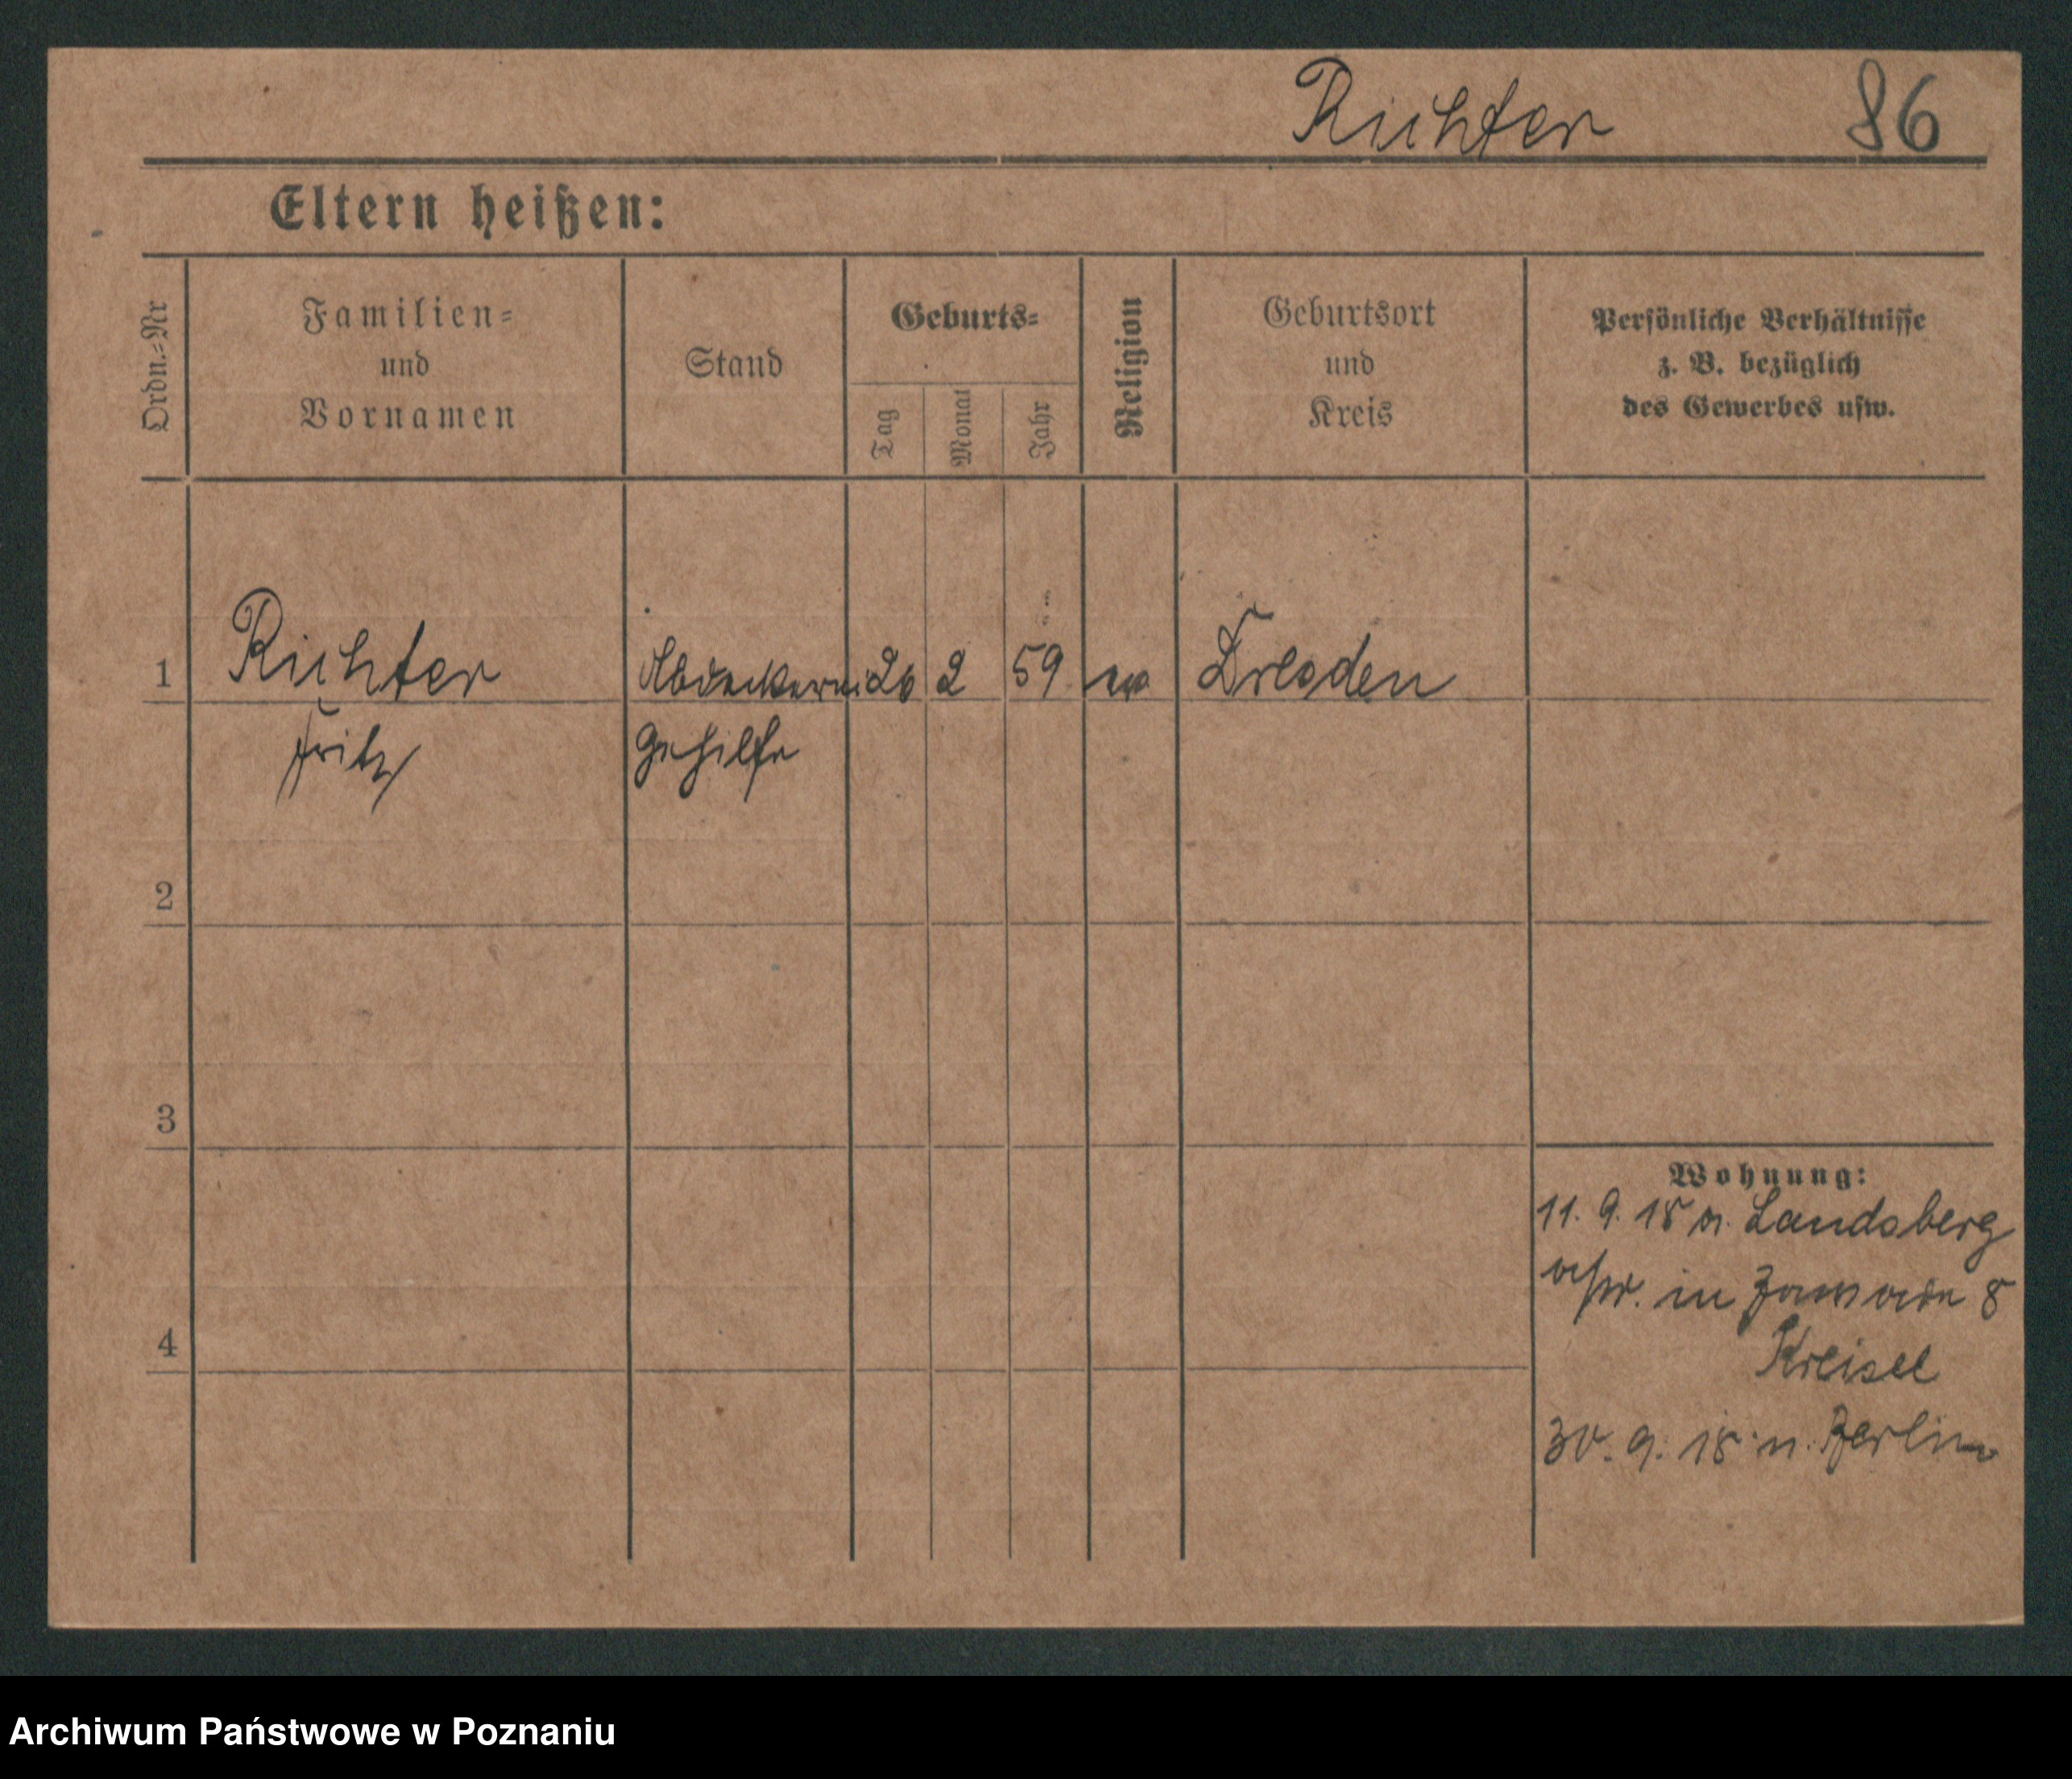 Richter 86
Eltern heißen:
Ordn.=Nr
Familien=
und
Vornamen
Stand
Geburts=
Tag
Monat
Jahr
Religion
Geburtsort
und
Kreis
Persönliche Verhältnisse
z. B. bezüglich
des Gewerbes usw.
1 Richter Abdeckerei 26 2 59 ev Dresden
Fritz Gehilfe
2
3
4
Wohnung:
11. 9. 18 n. Landsberg
in 8
Kreisel
30. 9. 18 n. Berlin
Archiwum Państwowe w Poznaniu